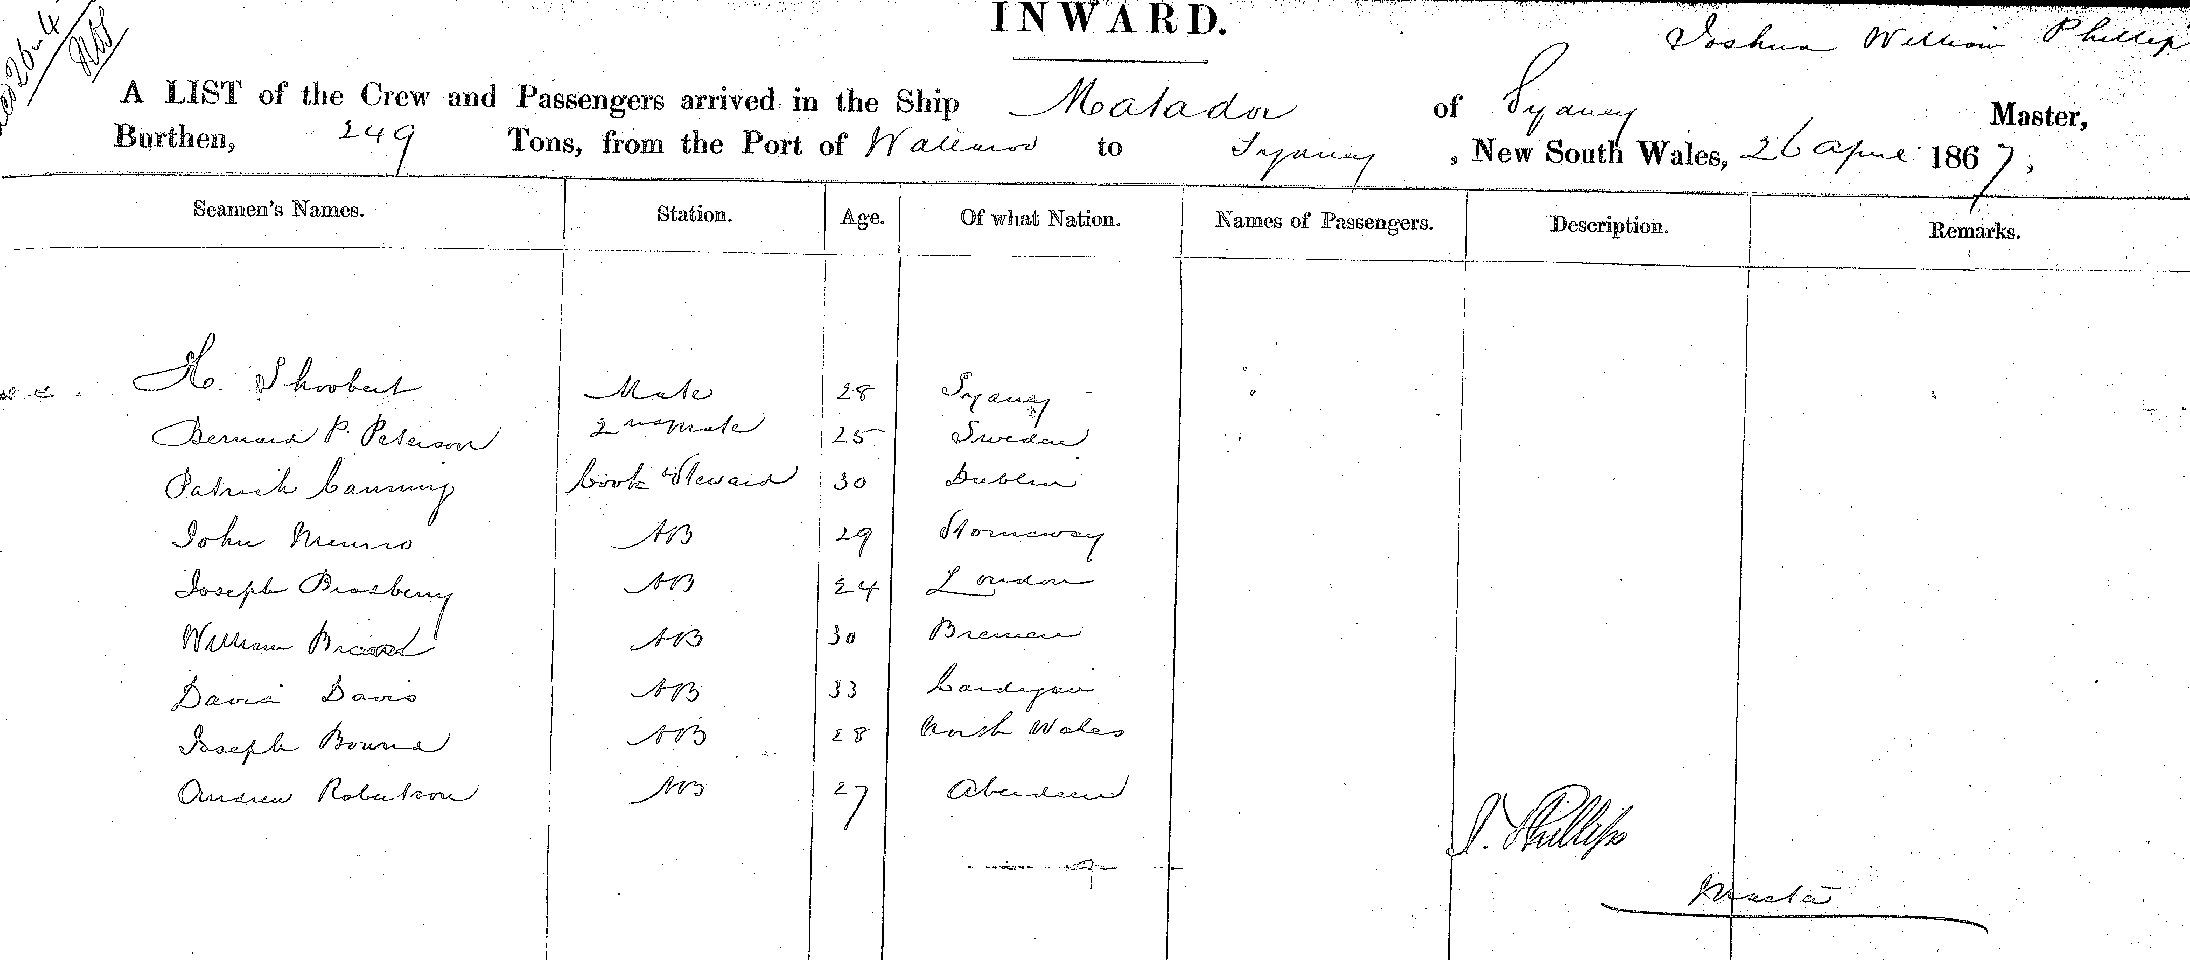 INWARD.
Joshua William Phillip
A LIST of the Crew and Passengers arrived in the Ship Matador of Sydney Master,
Burthen, 249 Tons, from the Port of Wallaroo to Sydney, New South Wales, 26 April 1867,
Seamen's Names. Station. Age. Of what Nation. Names of Passengers. Description. Remarks.
H. Shoobert Mate 28 Sydney
Bernard P. Peterson 2nd Mate 25 Sweden
Patrick Canning Cook & Steward 30 Dublin
John Munro AB 29 Stornoway
Joseph Brasberry AB 24 London
William AB 30 Bremen
David Davis AB 33 Cardigan
Joseph Bound AB 28 North Wales
Andrew Robertson AB 27 Aberdeen
J. Phillips
Master